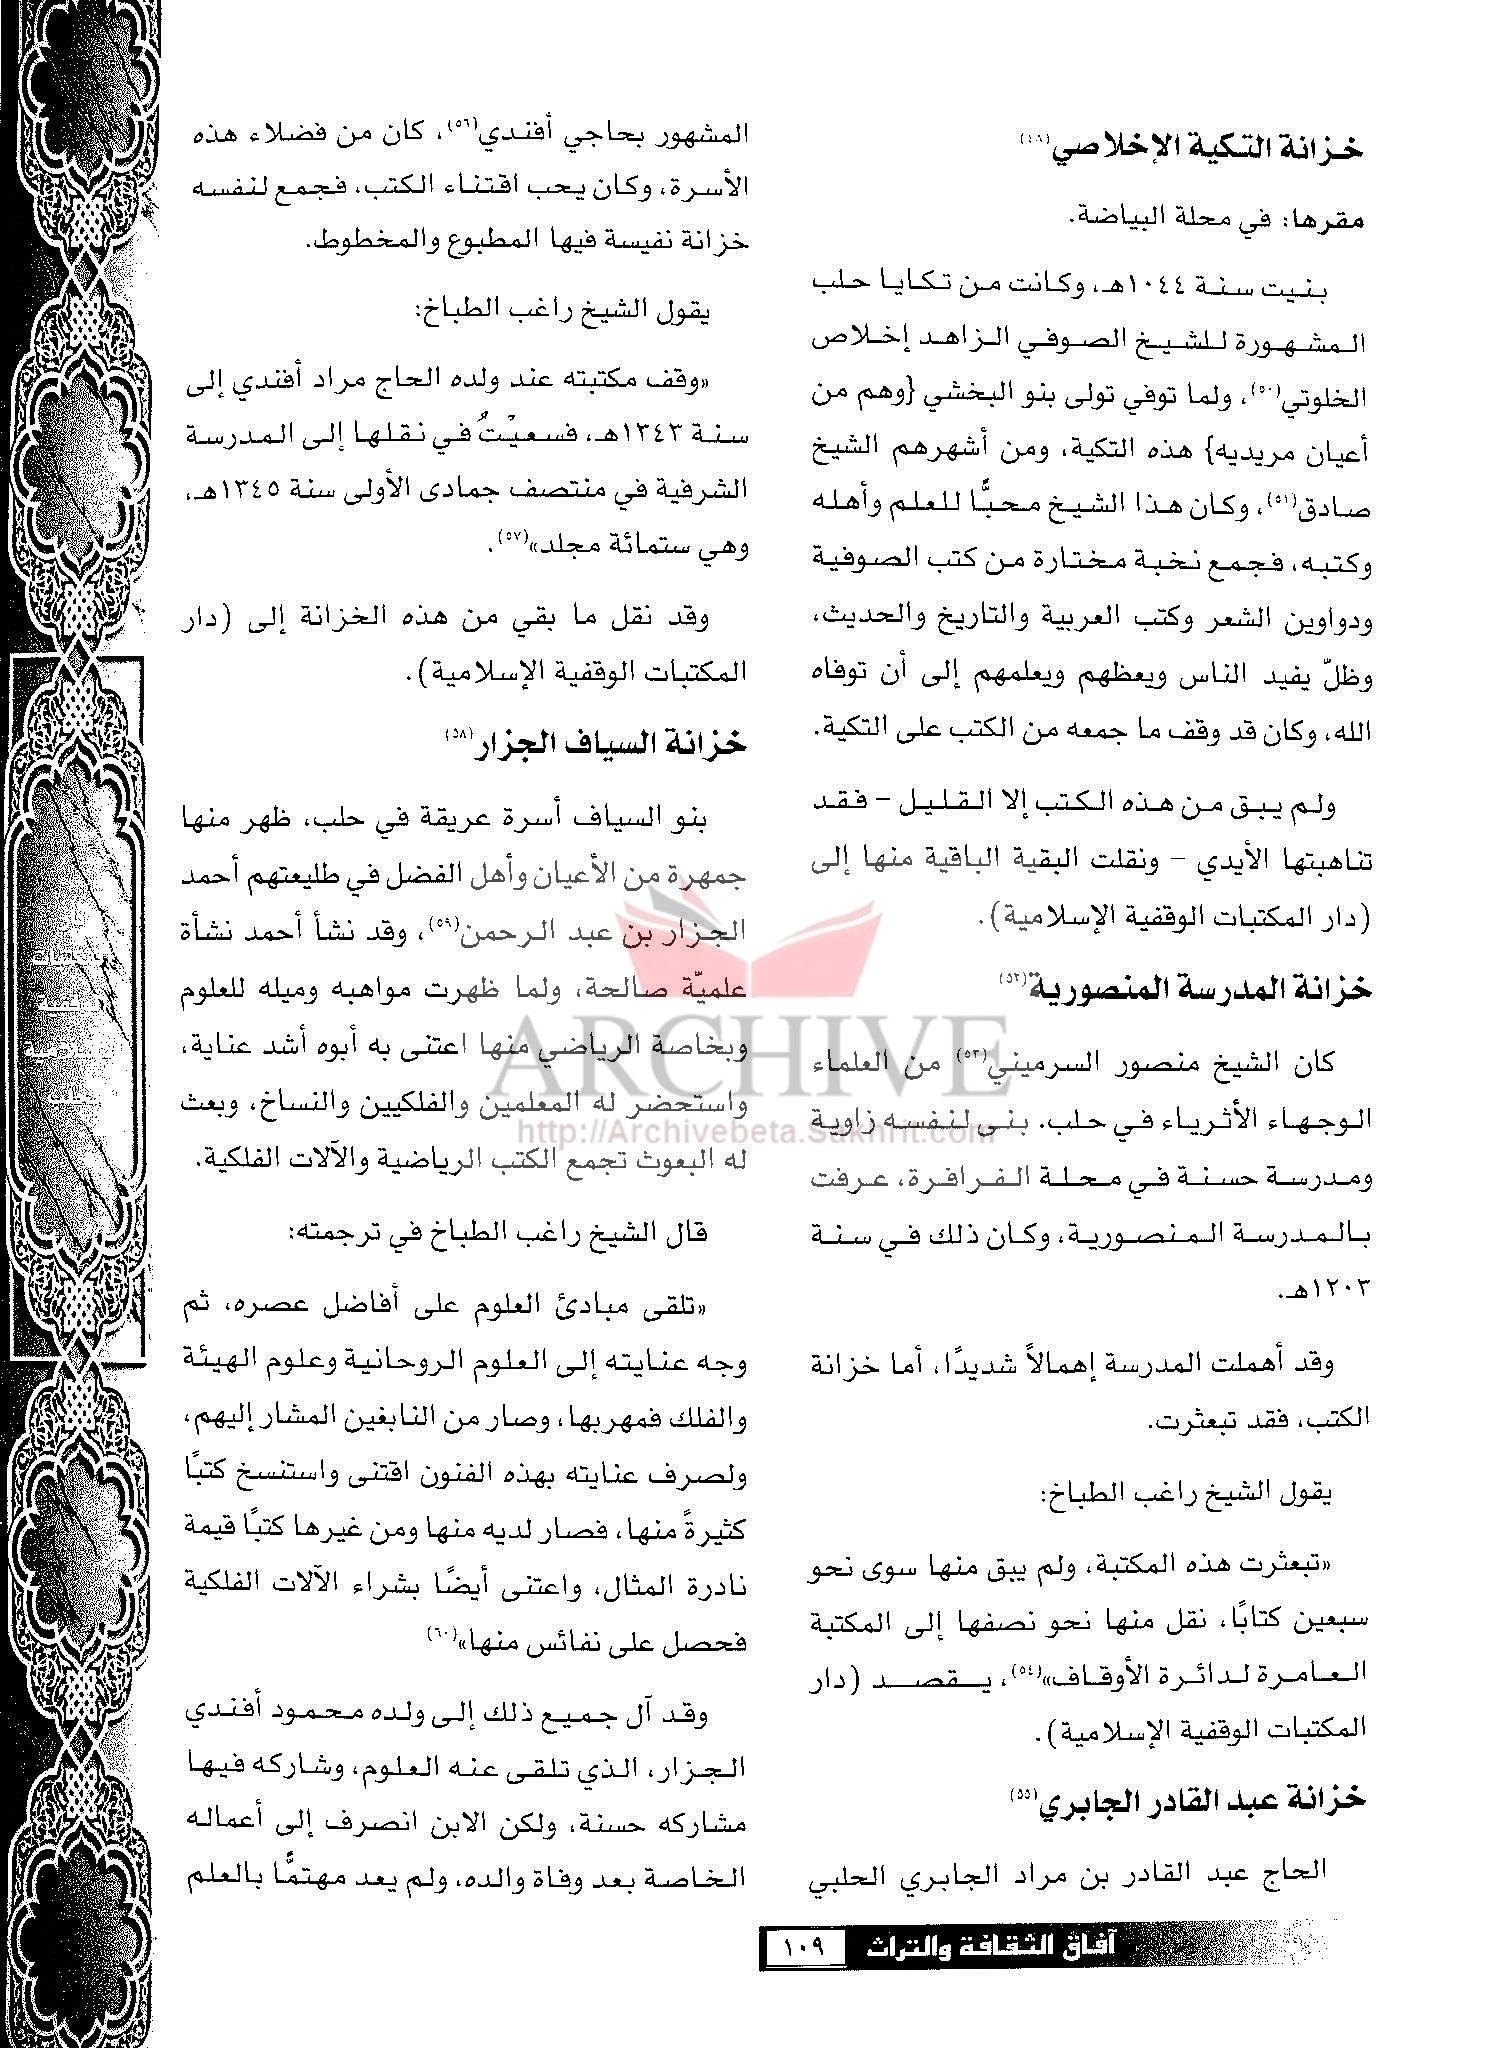 خزانة التكية الإخلاصي(٤٨)
مقرها: في محلة البياضة.
بنيت سنة ١٠٤٤هـ، وكانت من تكايا حلب
المشهورة للشيخ الصوفي الزاهد إخلاص
الخلوتي(٥٠)، ولما توفي تولى بنو البخشي {وهم من
أعيان مريديه} هذه التكية، ومن أشهرهم الشيخ
صادق(٥١)، وكان هذا الشيخ محبًّا للعلم وأهله
وكتبه، فجمع نخبة مختارة من كتب الصوفية
ودواوين الشعر وكتب العربية والتاريخ والحديث،
وظلّ يفيد الناس ويعظهم ويعلمهم إلى أن توفاه
الله، وكان قد وقف ما جمعه من الكتب على التكية.
ولم يبق من هذه الكتب إلا القليل – فقد
تناهبتها الأيدي – ونقلت البقية الباقية منها إلى
(دار المكتبات الوقفية الإسلامية).
خزانة المدرسة المنصورية(٥٢)
كان الشيخ منصور السرميني(٥٣) من العلماء
الوجهاء الأثرياء في حلب. بنى لنفسه زاوية
ومدرسة حسنة في محلة الفرافرة، عرفت
بالمدرسة المنصورية، وكان ذلك في سنة
١٢٠٣هـ.
وقد أهملت المدرسة إهمالاً شديدًا، أما خزانة
الكتب، فقد تبعثرت.
يقول الشيخ راغب الطباخ:
«تبعثرت هذه المكتبة، ولم يبق منها سوى نحو
سبعين كتابًا، نقل منها نحو نصفها إلى المكتبة
العامرة لدائرة الأوقاف»(٥٤)، يقصد (دار
المكتبات الوقفية الإسلامية).
خزانة عبد القادر الجابري(٥٥)
الحاج عبد القادر بن مراد الجابري الحلبي
المشهور بحاجي أفندي(٥٦)، كان من فضلاء هذه
الأسرة، وكان يحب اقتناء الكتب، فجمع لنفسه
خزانة نفيسة فيها المطبوع والمخطوط.
يقول الشيخ راغب الطباخ:
«وقف مكتبته عند ولده الحاج مراد أفندي إلى
سنة ١٣٤٣هـ، فسعيْتُ في نقلها إلى المدرسة
الشرفية في منتصف جمادى الأولى سنة ١٣٤٥هـ،
وهي ستمائة مجلد»(٥٧).
وقد نقل ما بقي من هذه الخزانة إلى (دار
المكتبات الوقفية الإسلامية).
خزانة السياف الجزار(٥٨)
بنو السياف أسرة عريقة في حلب، ظهر منها
جمهرة من الأعيان وأهل الفضل في طليعتهم أحمد
الجزار بن عبد الرحمن(٥٩)، وقد نشأ أحمد نشأة
علميّة صالحة، ولما ظهرت مواهبه وميله للعلوم
وبخاصة الرياضي منها اعتنى به أبوه أشد عناية،
واستحضر له المعلمين والفلكيين والنساخ، وبعث
له البعوث تجمع الكتب الرياضية والآلات الفلكية.
قال الشيخ راغب الطباخ في ترجمته:
«تلقى مبادئ العلوم على أفاضل عصره، ثم
وجه عنايته إلى العلوم الروحانية وعلوم الهيئة
والفلك فمهر بها، وصار من النابغين المشار إليهم،
ولصرف عنايته بهذه الفنون اقتنى واستنسخ كتبًا
كثيرةً منها، فصار لديه منها ومن غيرها كتبًا قيمة
نادرة المثال، واعتنى أيضًا بشراء الآلات الفلكية
فحصل على نفائس منها»(٦٠)
وقد آل جميع ذلك إلى ولده محمود أفندي
الجزار، الذي تلقى عنه العلوم، وشاركه فيها
مشاركه حسنة، ولكن الابن انصرف إلى أعماله
الخاصة بعد وفاة والده، ولم يعد مهتمًّا بالعلم
آفاق الثقافة والتراث ١٠٩
ARCHIVE
http://Archivebeta.Sakhrit.com